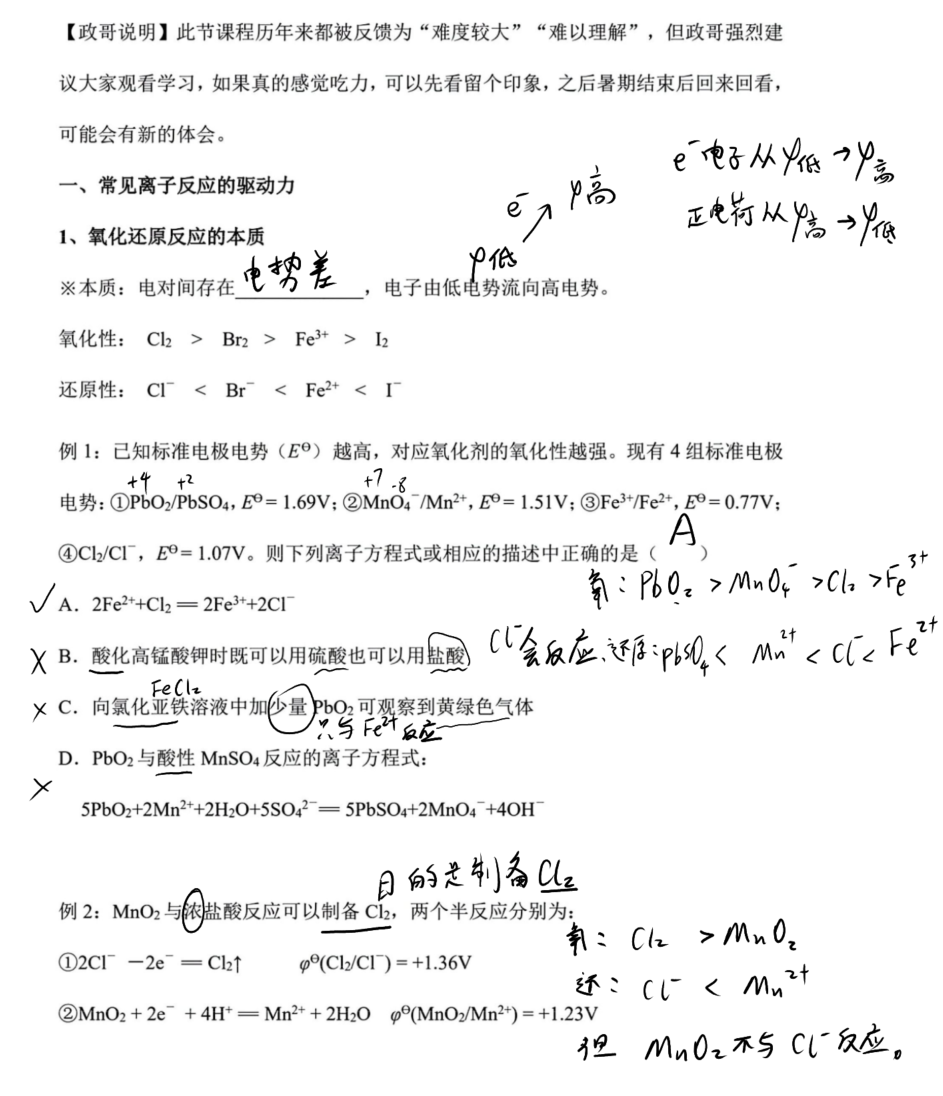 【政哥说明】此节课程历年来都被反馈为“难度较大”“难以理解”，但政哥强烈建
议大家观看学习，如果真的感觉吃力，可以先看留个印象，之后暑期结束后回来回看，
可能会有新的体会。
e⁻电子从φ低→φ高
一、常见离子反应的驱动力
e⁻ ↗ φ高
正电荷从φ高→φ低
1、氧化还原反应的本质
φ低
※本质：电对间存在电势差，电子由低电势流向高电势。
氧化性： Cl₂ > Br₂ > Fe³⁺ > I₂
还原性： Cl⁻ < Br⁻ < Fe²⁺ < I⁻
例 1：已知标准电极电势（Eᶱ）越高，对应氧化剂的氧化性越强。现有 4 组标准电极
+4 +2 +7 -8
电势：①PbO₂/PbSO₄，Eᶱ= 1.69V；②MnO₄⁻/Mn²⁺，Eᶱ= 1.51V；③Fe³⁺/Fe²⁺，Eᶱ= 0.77V；
④Cl₂/Cl⁻，Eᶱ= 1.07V。则下列离子方程式或相应的描述中正确的是（ A ）
氧：PbO₂ > MnO₄⁻ > Cl₂ > Fe³⁺
✓ A．2Fe²⁺+Cl₂ = 2Fe³⁺+2Cl⁻
✗ B．酸化高锰酸钾时既可以用硫酸也可以用盐酸 Cl⁻会反应、还原：PbSO₄ < Mn²⁺ < Cl⁻ < Fe²⁺
FeCl₂
✗ C．向氯化亚铁溶液中加少量 PbO₂ 可观察到黄绿色气体
只与Fe²⁺反应
✗ D．PbO₂ 与酸性 MnSO₄ 反应的离子方程式：
5PbO₂+2Mn²⁺+2H₂O+5SO₄²⁻= 5PbSO₄+2MnO₄⁻+4OH⁻
目的是制备Cl₂
例 2：MnO₂ 与浓盐酸反应可以制备 Cl₂，两个半反应分别为：
氧：Cl₂ > MnO₂
①2Cl⁻ －2e⁻ = Cl₂↑ φᶱ(Cl₂/Cl⁻) = +1.36V
还：Cl⁻ < Mn²⁺
②MnO₂ + 2e⁻ + 4H⁺ = Mn²⁺ + 2H₂O φᶱ(MnO₂/Mn²⁺) = +1.23V
但 MnO₂不与Cl⁻反应。